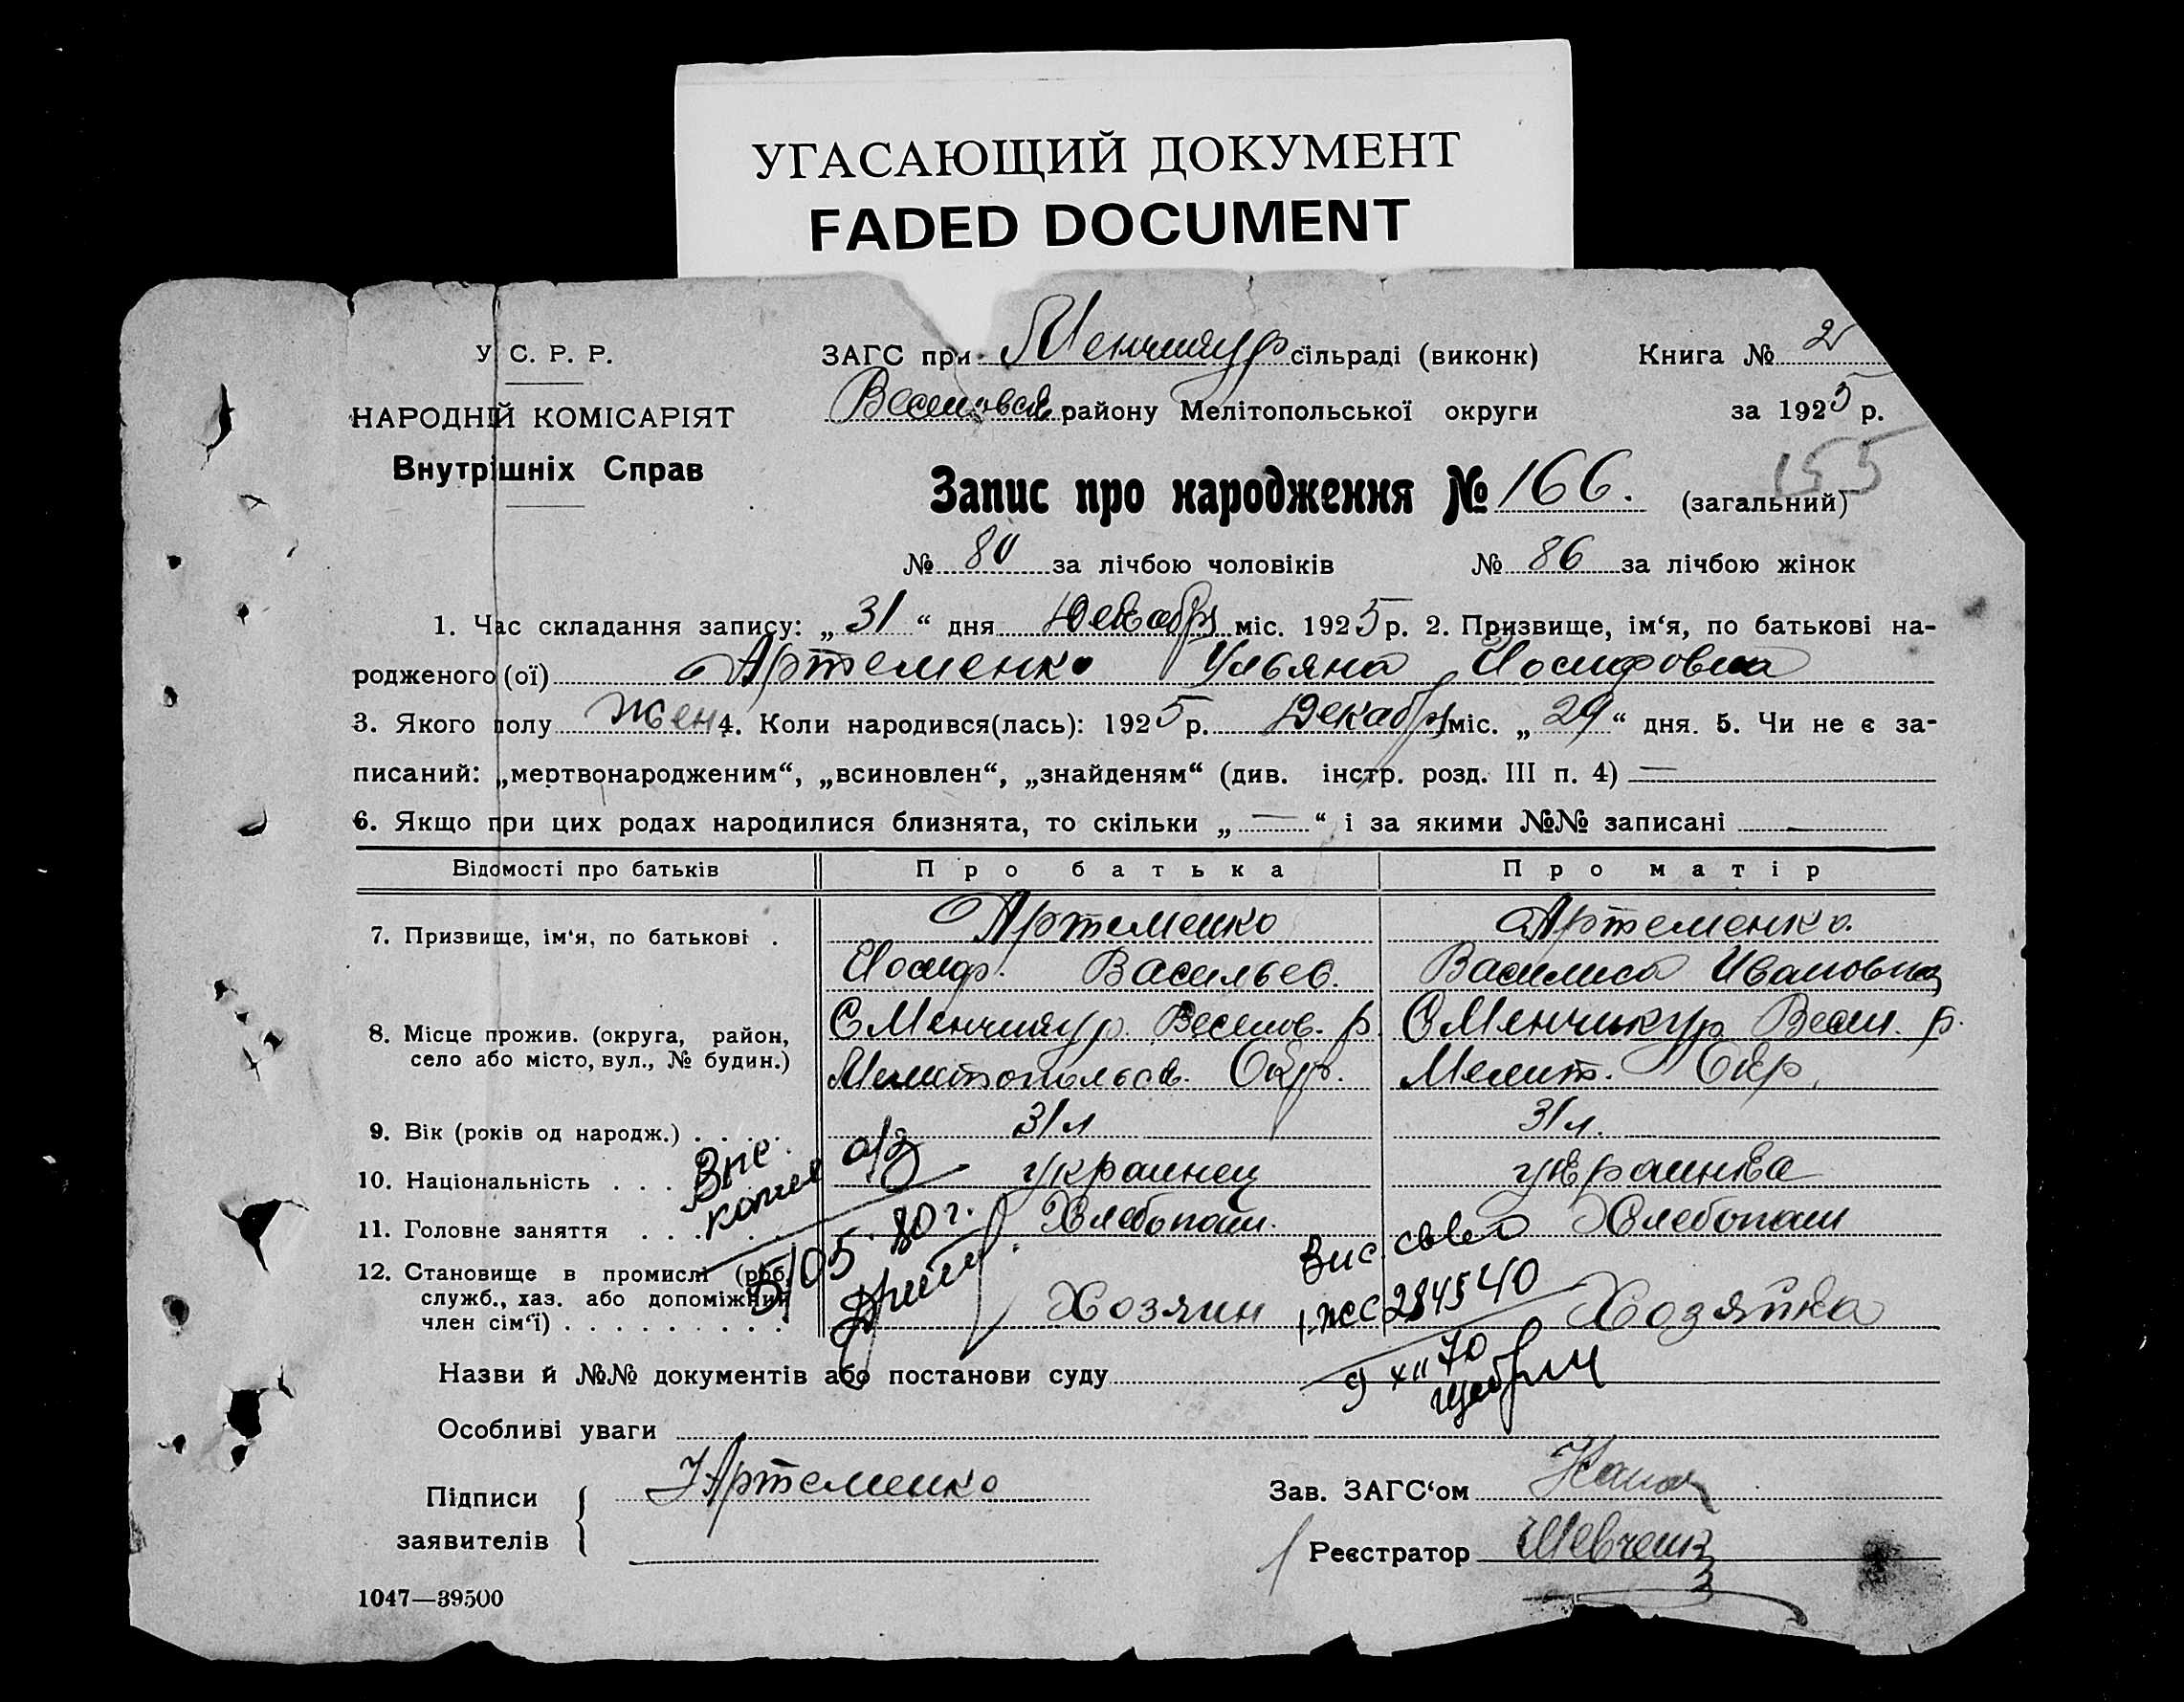 УГАСАЮЩИЙ ДОКУМЕНТ
FADED DOCUMENT
У С. Р. Р.
НАРОДНІЙ КОМІСАРІЯТ
Внутрішніх Справ
ЗАГС при Менчикур сільраді (виконк)
Книга № 2
Веселовск району Мелітопольської округи
за 1925 р.
155
Запис про народження № 166. (загальний)
№ 80 за лічбою чоловіків № 86 за лічбою жінок
1. Час складання запису: „31“ дня Декабря міс. 1925 р. 2. Призвище, ім‘я, по батькові на-
родженого (ої) Артеменко Ульяна Иосифовна
3. Якого полу жен 4. Коли народився(лась): 1925 р. Декабря міс. „29“ дня. 5. Чи не є за-
писаний: „мертвонародженим“, „всиновлен“, „знайденям“ (див. інстр. розд. III п. 4) —
6. Якщо при цих родах народилися близнята, то скільки „—“ і за якими №№ записані —
Відомості про батьків Про батька Про матір
7. Призвище, ім‘я, по батькові . Артеменко Артеменко.
Иосиф. Васильев. Василиса Ивановна
8. Місце прожив. (округа, район, село або місто, вул., № будин.)
С Менчикур. Веселов. р. С Менчикур Весел. р.
Мелитопольск. Окр. Мелит. Окр.
9. Вік (років од народж.) . . . . 31 л 31 л.
10. Національність . . . украинец украинка
11. Головне заняття . . . . Хлебопаш. Хлебопаш
12. Становище в промислі (роб., служб., хаз. або допоміжний член сім‘ї) . . . . . . . . . Хозяин Хозяйка
копия
5/05. 80 г.
Выс. св-во
1. ЖС 284540
9 XII 70
Назви й №№ документів або постанови суду
Особливі уваги
Підписи заявителів
Артеменко
Зав. ЗАГС‘ом
Реєстратор Шевченк
1047—39500